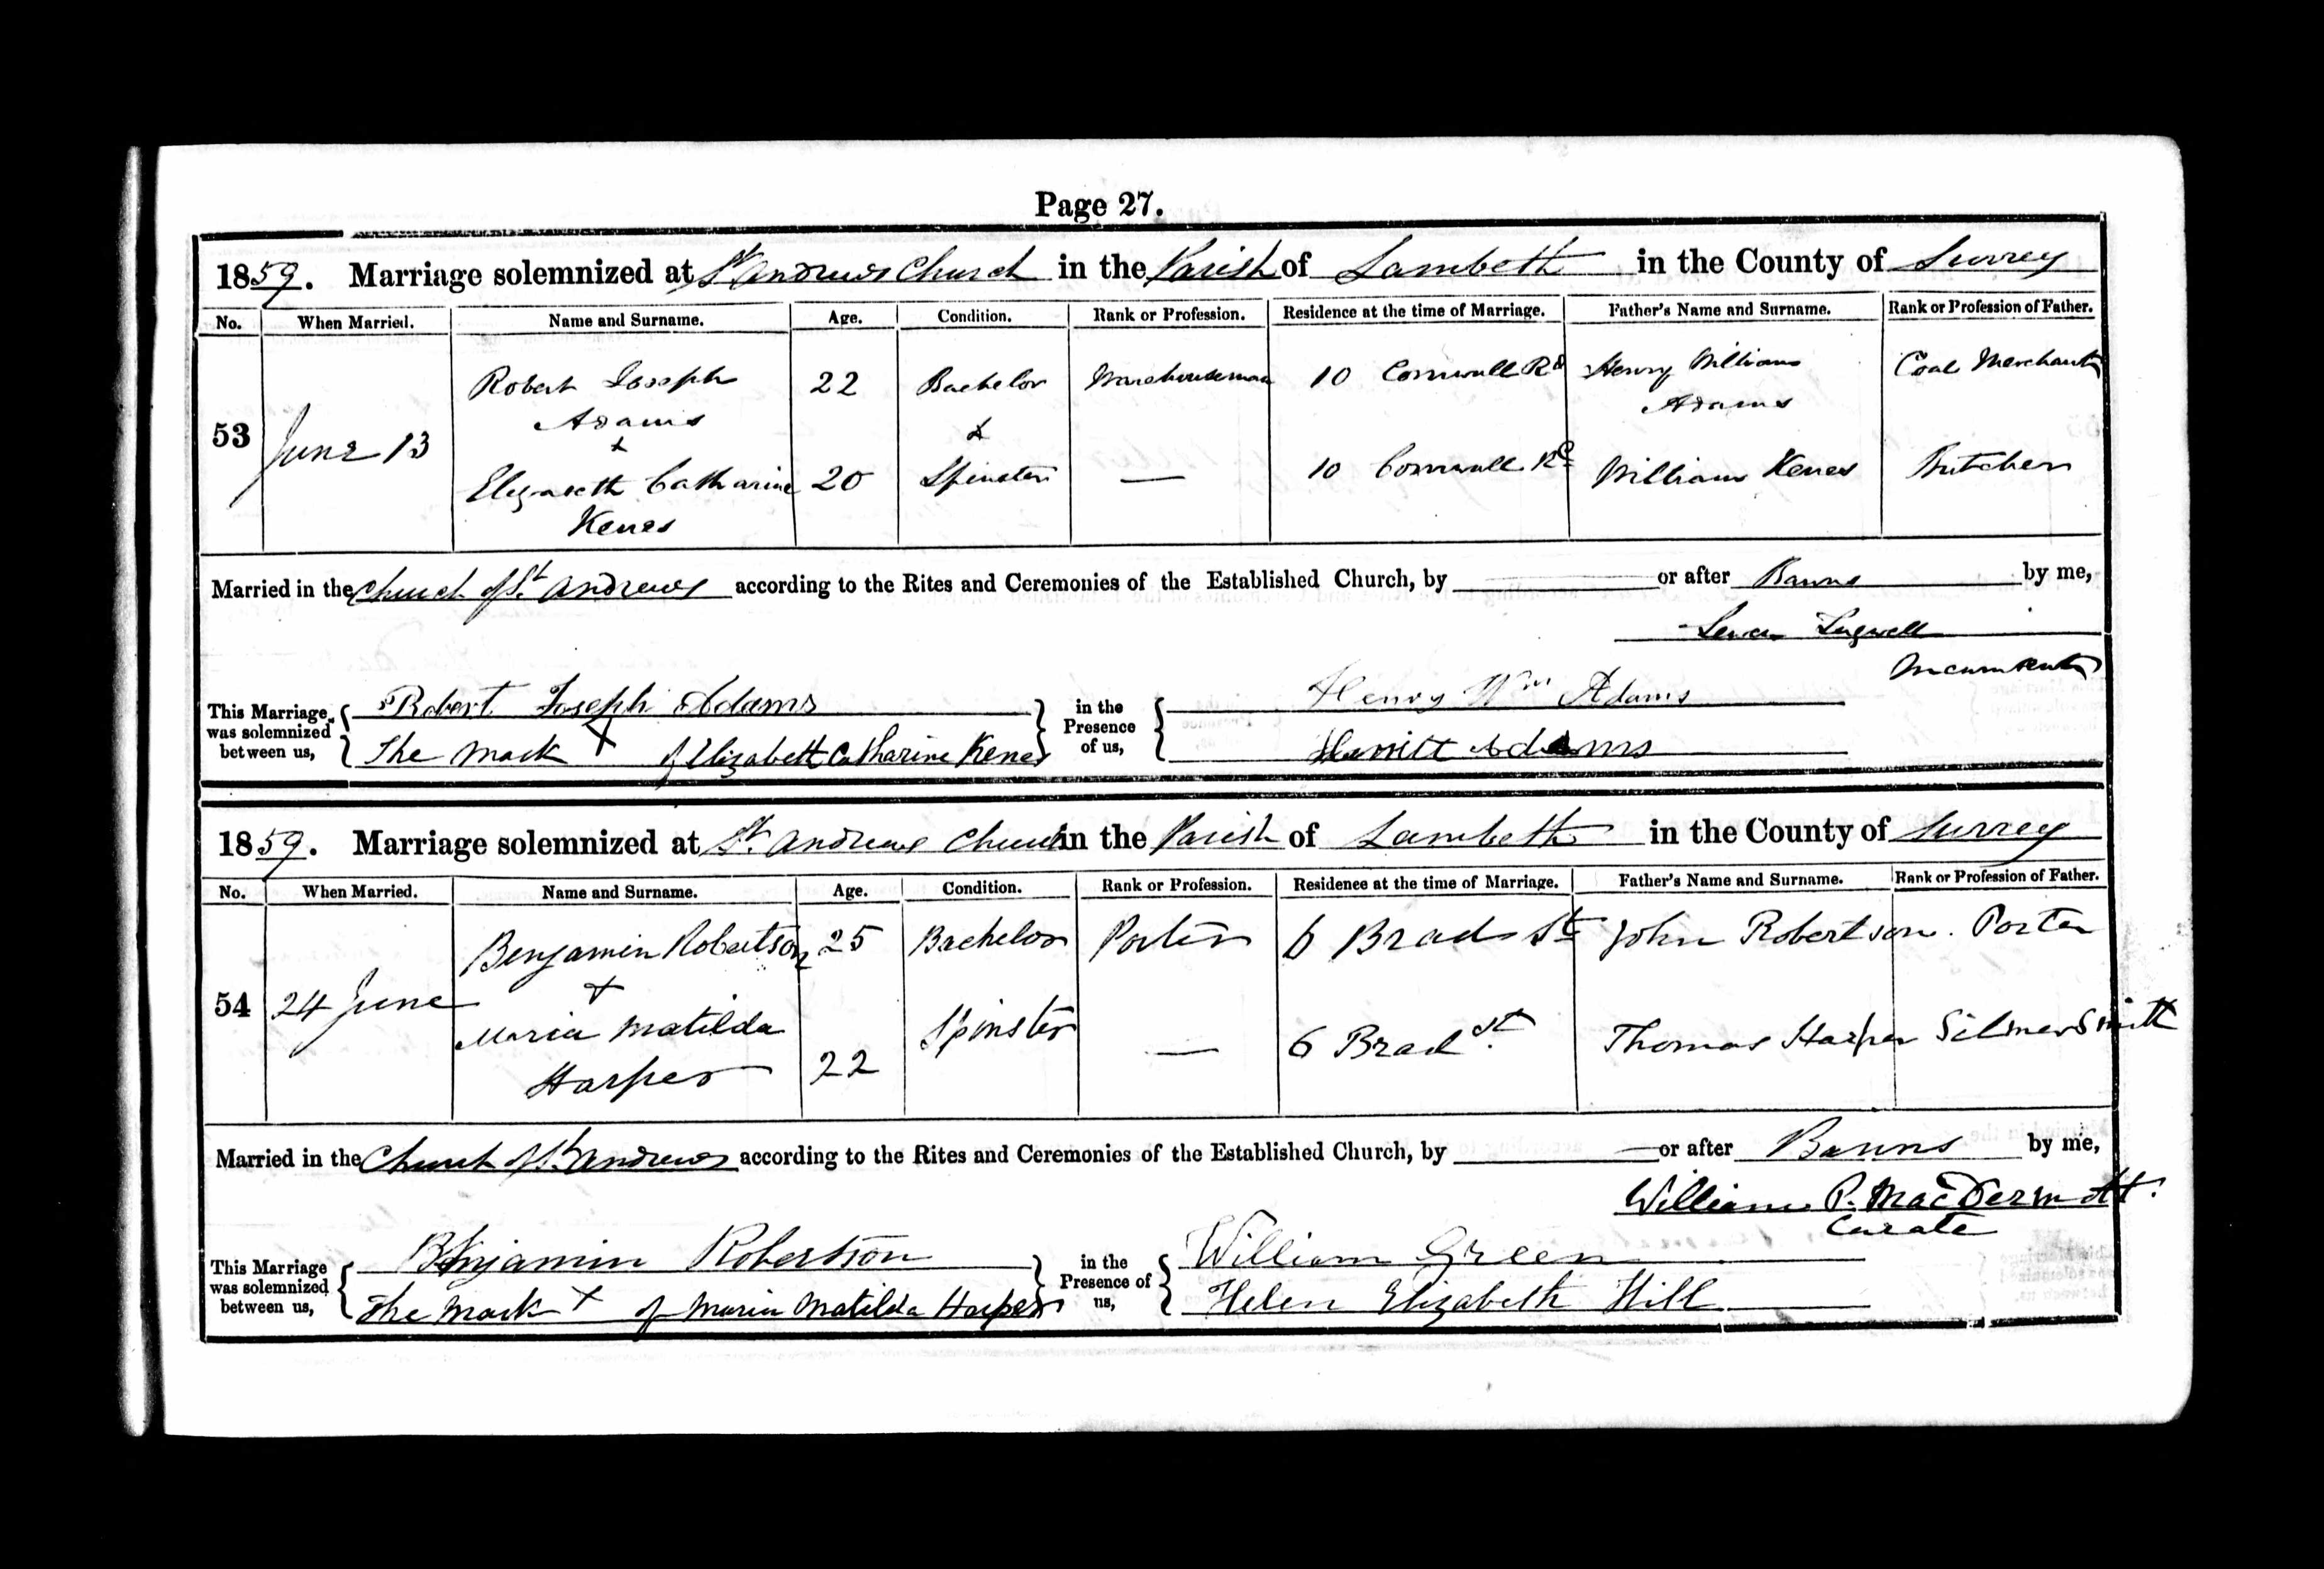 Page 27.
1859. Marriage solemnized at St Andrews Church in the Parish of Lambeth in the County of Surrey
No. When Married. Name and Surname. Age. Condition. Rank or Profession. Residence at the time of Marriage. Father's Name and Surname. Rank or Profession of Father.
Robert Joseph 22 Bachelor Warehouseman 10 Cornwall Rd Henry William Coal Merchant
Adams Adams
53 June 13 + +
Elizabeth Catharine 20 Spinster — 10 Cornwall Rd William Kenes Butcher
Kenes
Married in the Church of St. Andrews according to the Rites and Ceremonies of the Established Church, by or after Banns by me,
Incumbent
This Marriage was solemnized between us, Robert Joseph Adams in the Presence of us, Henry Wm Adams
The Mark X of Elizabeth Catharine Kenes Adams
1859. Marriage solemnized at St. Andrews Church in the Parish of Lambeth in the County of Surrey
No. When Married. Name and Surname. Age. Condition. Rank or Profession. Residence at the time of Marriage. Father's Name and Surname. Rank or Profession of Father.
Benjamin Robertson 25 Bachelor Porter 6 Brad St John Robertson. Porter
54 24 June +
Maria Matilda Spinster — 6 Brad St. Thomas Harper Silver Smith
Harper 22
Married in the Church of St Andrews according to the Rites and Ceremonies of the Established Church, by or after Banns by me,
William P. MacDermott.
Curate
This Marriage was solemnized between us, Benjamin Robertson in the Presence of us, William Green
The Mark X of Maria Matilda Harper Helen Elizabeth Hill